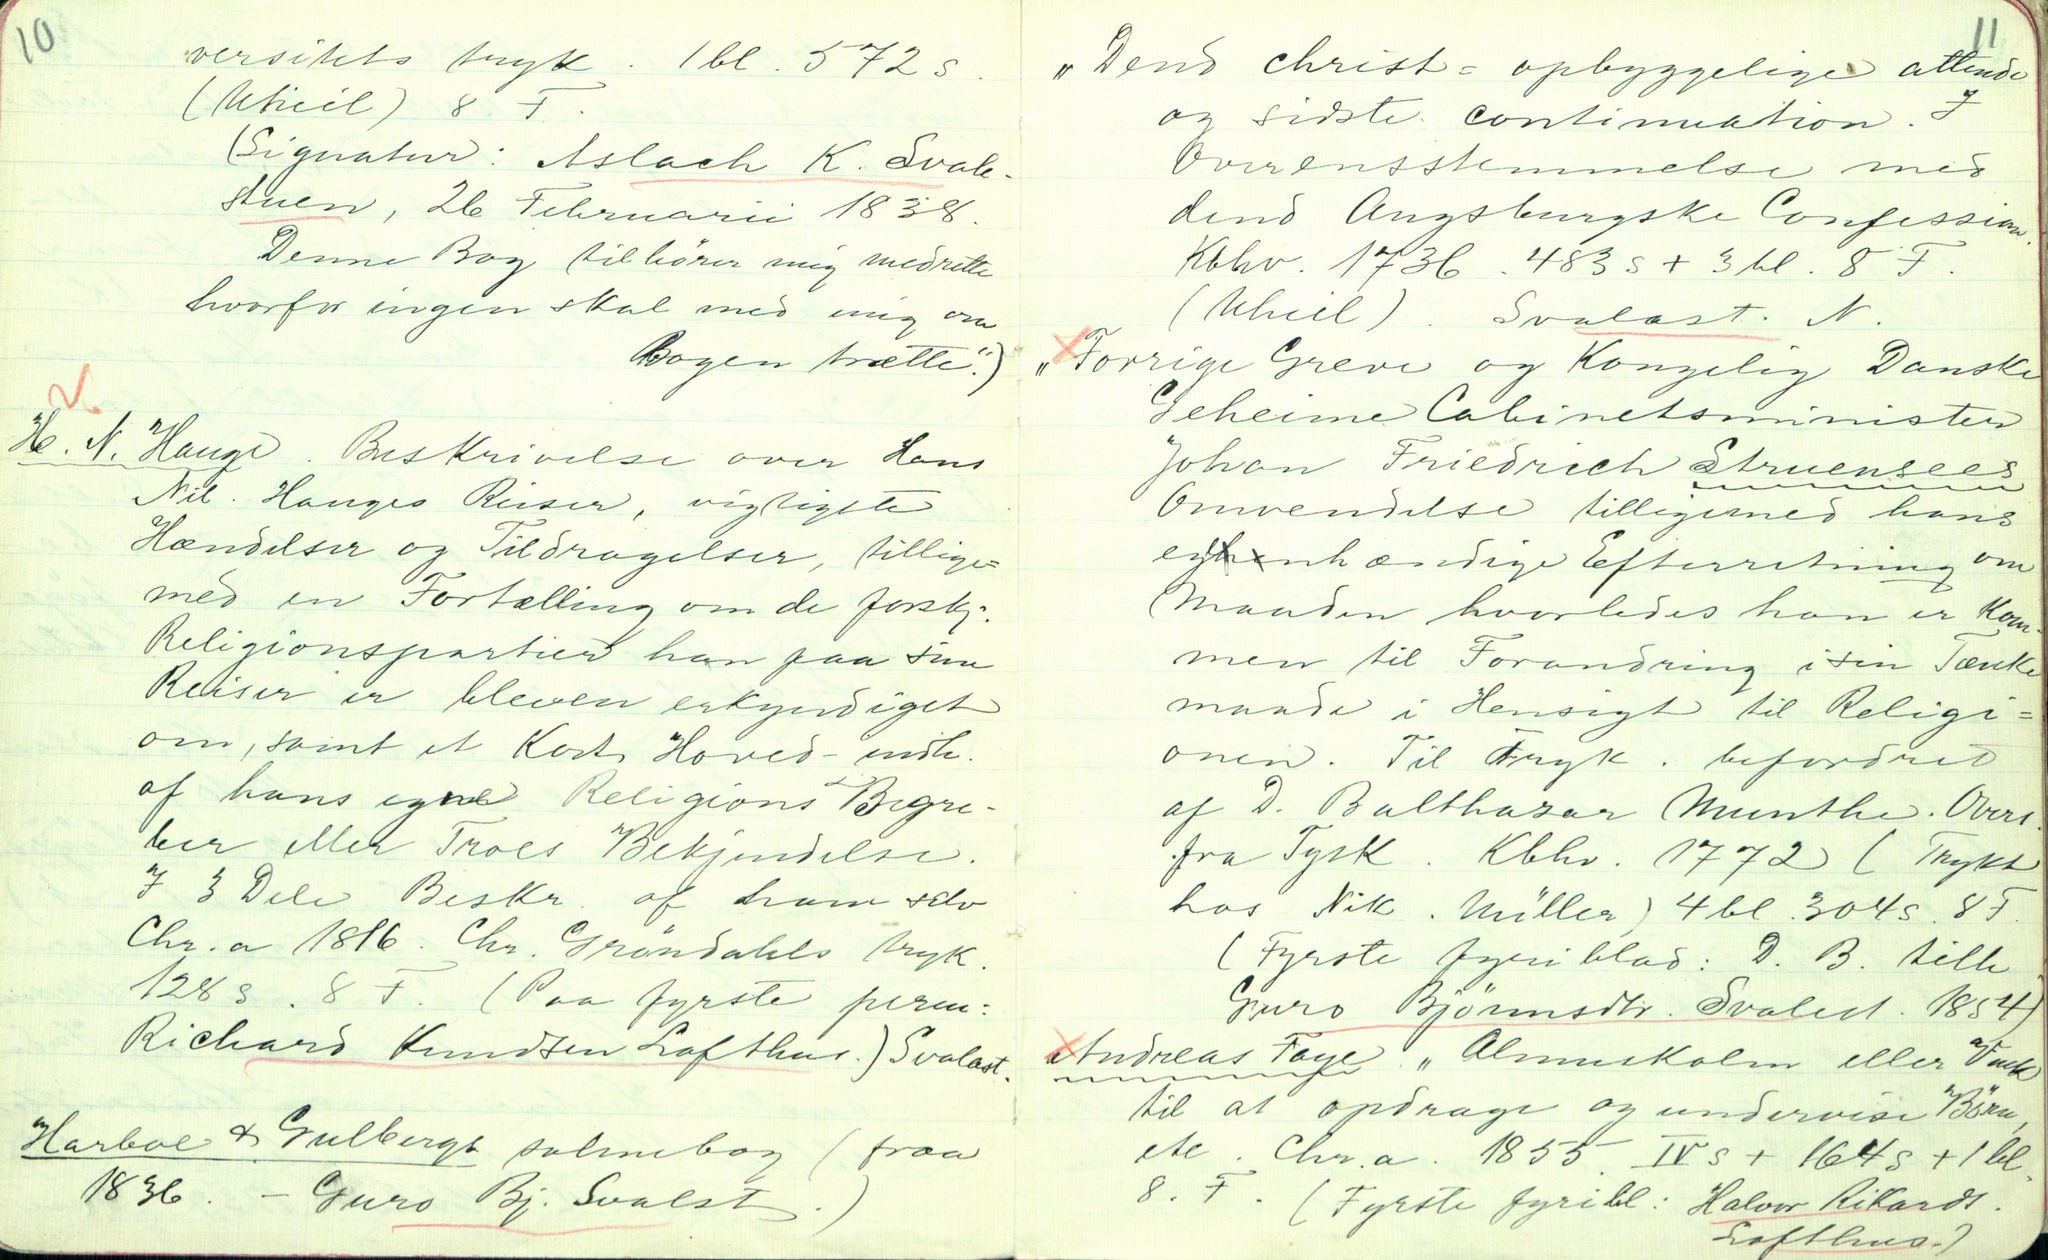 10
versitets tryk. 1 bl. 572 s.
(Uheil) 8 F.
(Signatur: Aslach K. Svale-
stuen, 26 Februarii 1838.
Denne Bog tilhörer mig medrette
hvorfor ingen skal med mig om
Bogen trætte".)
H. N. Hauge. Beskrivelse over Hans
Nil. Hauges Reiser, vigtigste
Hændelser og Tildragelser, tillige=
med en Fortælling om de forskj.
Religionspartier han paa sine
Reiser er bleven erkyndiget
om, samt et Kort Hoved-indh.
af hans egne Religions Begre-
ber eller Troes Bekjendelse.
I 3 Dele Beskr. af ham selv
Chr.a 1816. Chr. Gröndahls tryk.
128 s. 8 F. (Paa fyrste perm:
Richard Knudsen Lofthus.) Svalast.
Harboe & Gulbergs salmebog (fraa
1836. – Guro Bj. Svalst.)
11
"Dend christ= opbyggelige attende
og sidste continuation. I
Overensstemmelse med
dend Augsburgske Confession.
Kbhv. 1736. 483 s + 3 bl. 8 F.
(Uheil). Svalast. N.
"Forrige Greve og Kongelig Danske
Geheime Cabinetsminister
Johan Friedrich Struensees
Omvendelse tilligemed hans
egenhændige Efterretning om
Maaden hvorledes han er Kom-
men til Forandring i sin Tænke
maade i Hensigt til Religi=
onen. Til Tryk. befordret
af D. Balthasar Munthe. Overs.
fra Tysk. Kbhv. 1772 (Trykt
hos Nik. Müller) 4 bl. 304 s. 8 F.
(Fyrste fyriblad: D. B. tilh
Guro Björnsdtr. Svalest. 1854)
Andreas Faye. "Almuskolen eller
til at opdrage og undervise Börn,
etc. Chr.a. 1855. IV s + 164 s + 1 bl.
8. F. (Fyrste fyribl: Halvor Rikards.
Lofthus.)